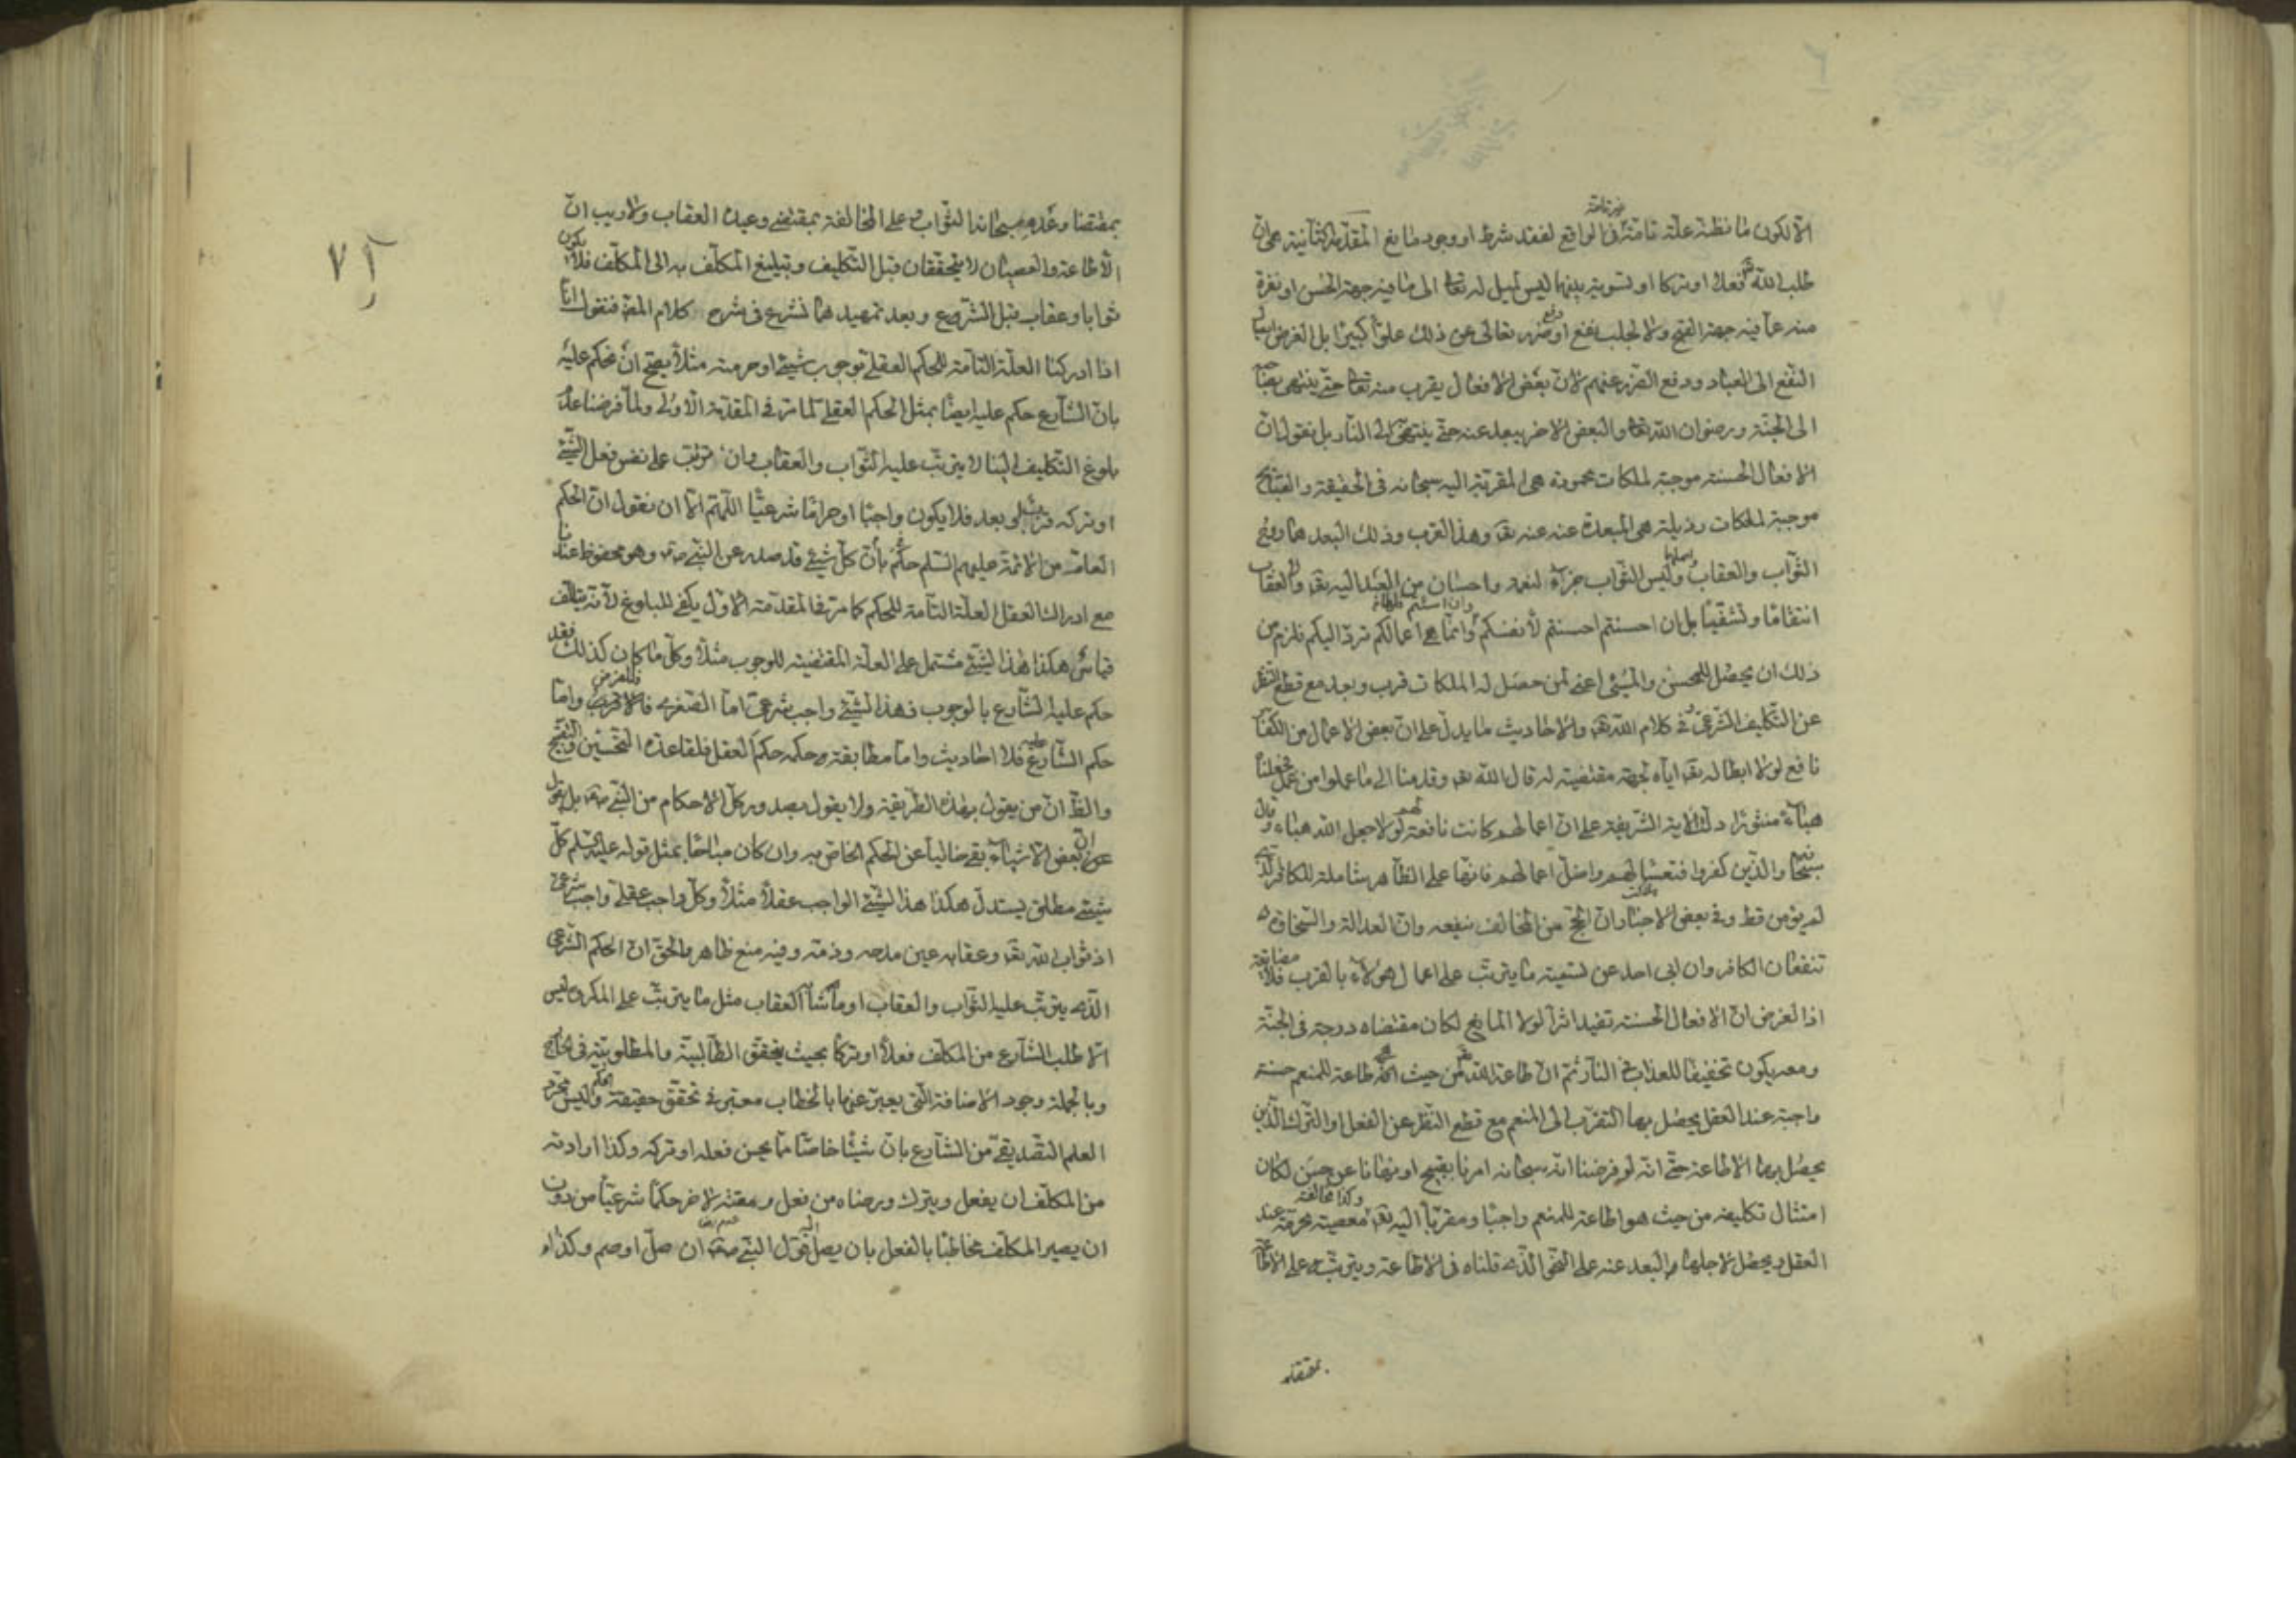 الا لكون ما نظنه علة تامة غير تامة فى الواقع لفقد شرط او وجود مانع المقدمة الثانية هى ان
طلب الله تعالى فعلا او تركا او تسوية بينهما ليس لميل له تعالى الى ما فيه جهة الحسن او نفرة
منه عما فيه جهة القبح ولا لجلب نفع او دفع ضر تعالى عن ذلك علوا كبيرا بل الغرض ايصال
النفع الى العباد ودفع الضرر عنهم لان بعض الافعال يقرب منه تعالى حتى ينتهى بصاحبه
الى الجنة ورضوان الله تعالى والبعض الاخر يبعد عنه حتى ينتهى الى النار بل نقول ان
الافعال الحسنة موجبة لملكات محمودة هى المقربة اليه سبحانه فى الحقيقة والقبائح
موجبة لملكات رذيلة هى المبعدة عنه عنه تعا وهذا القرب وذلك البعد هما روح
الثواب والعقاب واصلهما وليس الثواب جزاء لنعمة واحسان من العبد اليه تعا ولا العقاب
انتقاما وتشفيا بل ان احسنتم احسنتم لأنفسكم وان اسئتم فلها وانما هى اعمالكم ترد اليكم فلزم من
ذلك ان يحصل للمحسن والمسئ اعنى لمن حصل له الملكات قرب وبعد مع قطع النظر
عن التكليف الشرعى وفى كلام الله تعا والاحاديث ما يدل على ان بعض الاعمال من الكفار
نافع لولا ابطاله تعا اياه لجهة مقتضية له قال الله تعا وقدمنا الى ما عملوا من عمل فجعلناه
هباء منثورا دلت الاية الشريفة على ان اعمالهم كانت نافعة لهم لولا جعل الله هباء وقال
سبحانه والذين كفروا فتعسا لهم واضل اعمالهم فانها على الظاهر شاملة للكافر الذى
لم يؤمن قط وفى بعض الاخبار ان الحج من المخالف ينفعه وان العدالة والسخاوة
تنفعان الكافر وان ابى احد عن تسمية ما يترتب على اعمال هؤلاء بالقرب فلا مضايقة
اذ الغرض ان الافعال الحسنة تفيد اثرا لولا المانع لكان مقتضاه درجة فى الجنة
ومعه يكون تخفيفا للعذاب فى النار ثم ان طاعة الله تعالى من حيث انها طاعة للمنعم حسنة
واجبة عند العقل يحصل بها التقرب الى المنعم مع قطع النظر عن الفعل او الترك الذين
يحصل بهما الاطاعة حتى انه لو فرضنا انه سبحانه امرنا بقبيح او نهانا عن حسن لكان
امتثال تكليفه من حيث هو اطاعة للمنعم واجبا ومقربا اليه تعا وكذا مخالفته معصية محرمة عند
العقل ويحصل لاجلها البعد عنه على النحو الذى قلناه فى الاطاعة ويترتب على الاطاعة
بمقتضا
بمقتضا وعده سبحانه الثواب و على المخالفة بمقتضى وعيده العقاب ولا ريب ان
الاطاعة والعصيان لا يتحققان قبل التكليف وتبليغ المكلف به الى المكلف فلا يكون
ثوابا وعقاب قبل الشرع وبعد تمهيدهما نشرع فى شرح كلام المصنف فنقول انا
اذا ادركنا العلة التامة للحكم العقلى بوجوب شيئ او حرمته مثلا يصح ان نحكم عليه
بان الشارع حكم عليه ايضا بمثل الحكم العقلى لما مر فى المقدمة الاولى ولما فرضنا عدم
بلوغ التكليف الينا لا يترتب عليه الثواب والعقاب وان ترتب على نفس فعل الشيئ
او تركه قرب وبعد فلا يكون واجبا او حراما شرعيا اللهم الا ان نقول ان الحكم
العام من الائمة عليهم السلم حكم بأن كل شيئ قد صدر عن النبى ص وهو محفوظ عندنا
مع ادراك العقل العلة التامة للحكم كما مر فى المقدمة الاولى يكفى للبلوغ لأنه يتألف
قياس هكذا هذا الشيئ مشتمل على العلة المقتضية للوجوب مثلا وكل ما كان كذلك فقد
حكم عليه الشارع بالوجوب فهذا الشيئ واجب شرعى اما الصغرى فللفرض واما
حكم الشارع عليه فلا احاديث واما مطابقة حكمه حكم العقل فلقاعدة التحسين والتقبيح
والظ ان من يقول بهذه الطريقة ولا يقول بصدور كل الاحكام من النبى ص بل يقول
ان بعض الاشياء بقى خاليا عن الحكم الخاص به وان كان مباحا بمثل قوله عليه السلم كل
شيئ مطلق يستدل هكذا هذا الشيئ الواجب عقلا مثلا وكل واجب عقلى واجب شرعى
اذ ثواب الله تعا وعقابه عين مدحه وذمه وفيه منع ظاهر والحق ان الحكم الشرعى
الذى يترتب عليه الثواب والعقاب او ما شأنه العقاب مثل ما يترتب على المكروه ليس
الا طلب الشارع من المكلف فعلا او تركا بحيث يتحقق الطالبية والمطلوبية فى الخارج
وبالجملة وجود الاضافة التى يعبر عنها بالخطاب معتبر فى تحقق حقيقة الحكم وليس مجرد
العلم التصديقى من الشارع بان شيئا خاصا مما يحسن فعله او تركه وكذا ارادته
من المكلف ان يفعل ويترك ورضاه من فعل ومقته لاخر حكما شرعيا من دون
ان يصير المكلف مخاطبا بالفعل بان يصل اليه قول النبى ص ان صل او صم وكذا لو